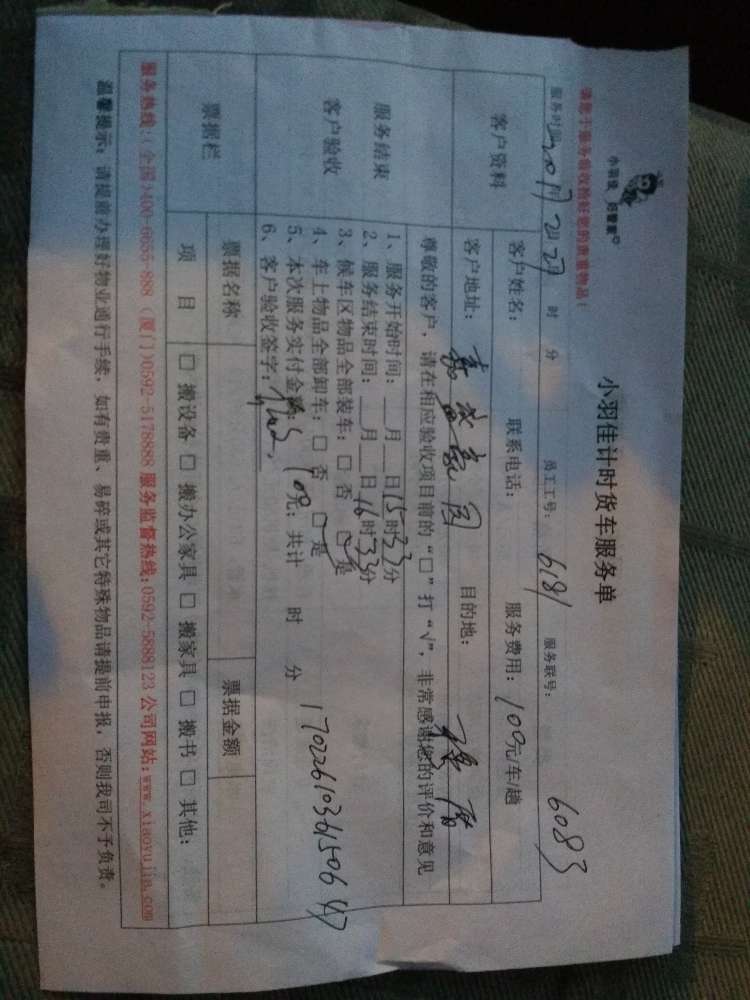 小羽佳 好管家
小羽佳计时货车服务单
请您于服务前收拾好您的贵重物品！
服务时间：2017年2月27日 时 分 员工工号：6181 服务联号：6083
客户资料
客户姓名： 联系电话： 服务费用：109元/车/趟
客户地址： 家园 目的地：
尊敬的客户，请在相应验收项目前的“□”打“√”，非常感谢您的评价和意见
服务结束
客户验收
1、服务开始时间：__月__日15时33分
2、服务结束时间：__月__日16时33分
3、候车区物品全部装车：□ 否 □ 是
4、车上物品全部卸车：□ 否 □ 是
5、本次服务实付金额：109元；共计 时 分
6、客户验收签字：
票据栏
票据名称 票据金额
项 目 □ 搬设备 □ 搬办公家具 □ 搬家具 □ 搬书 □ 其他：
服务热线：(全国)400-6655-888 (厦门)0592-5178888 服务监督热线：0592-5888123 公司网站：www.xiaoyujia.com
温馨提示：请提前办理好物业通行手续，如有贵重、易碎或其它特殊物品请提前申报，否则我司不予负责。